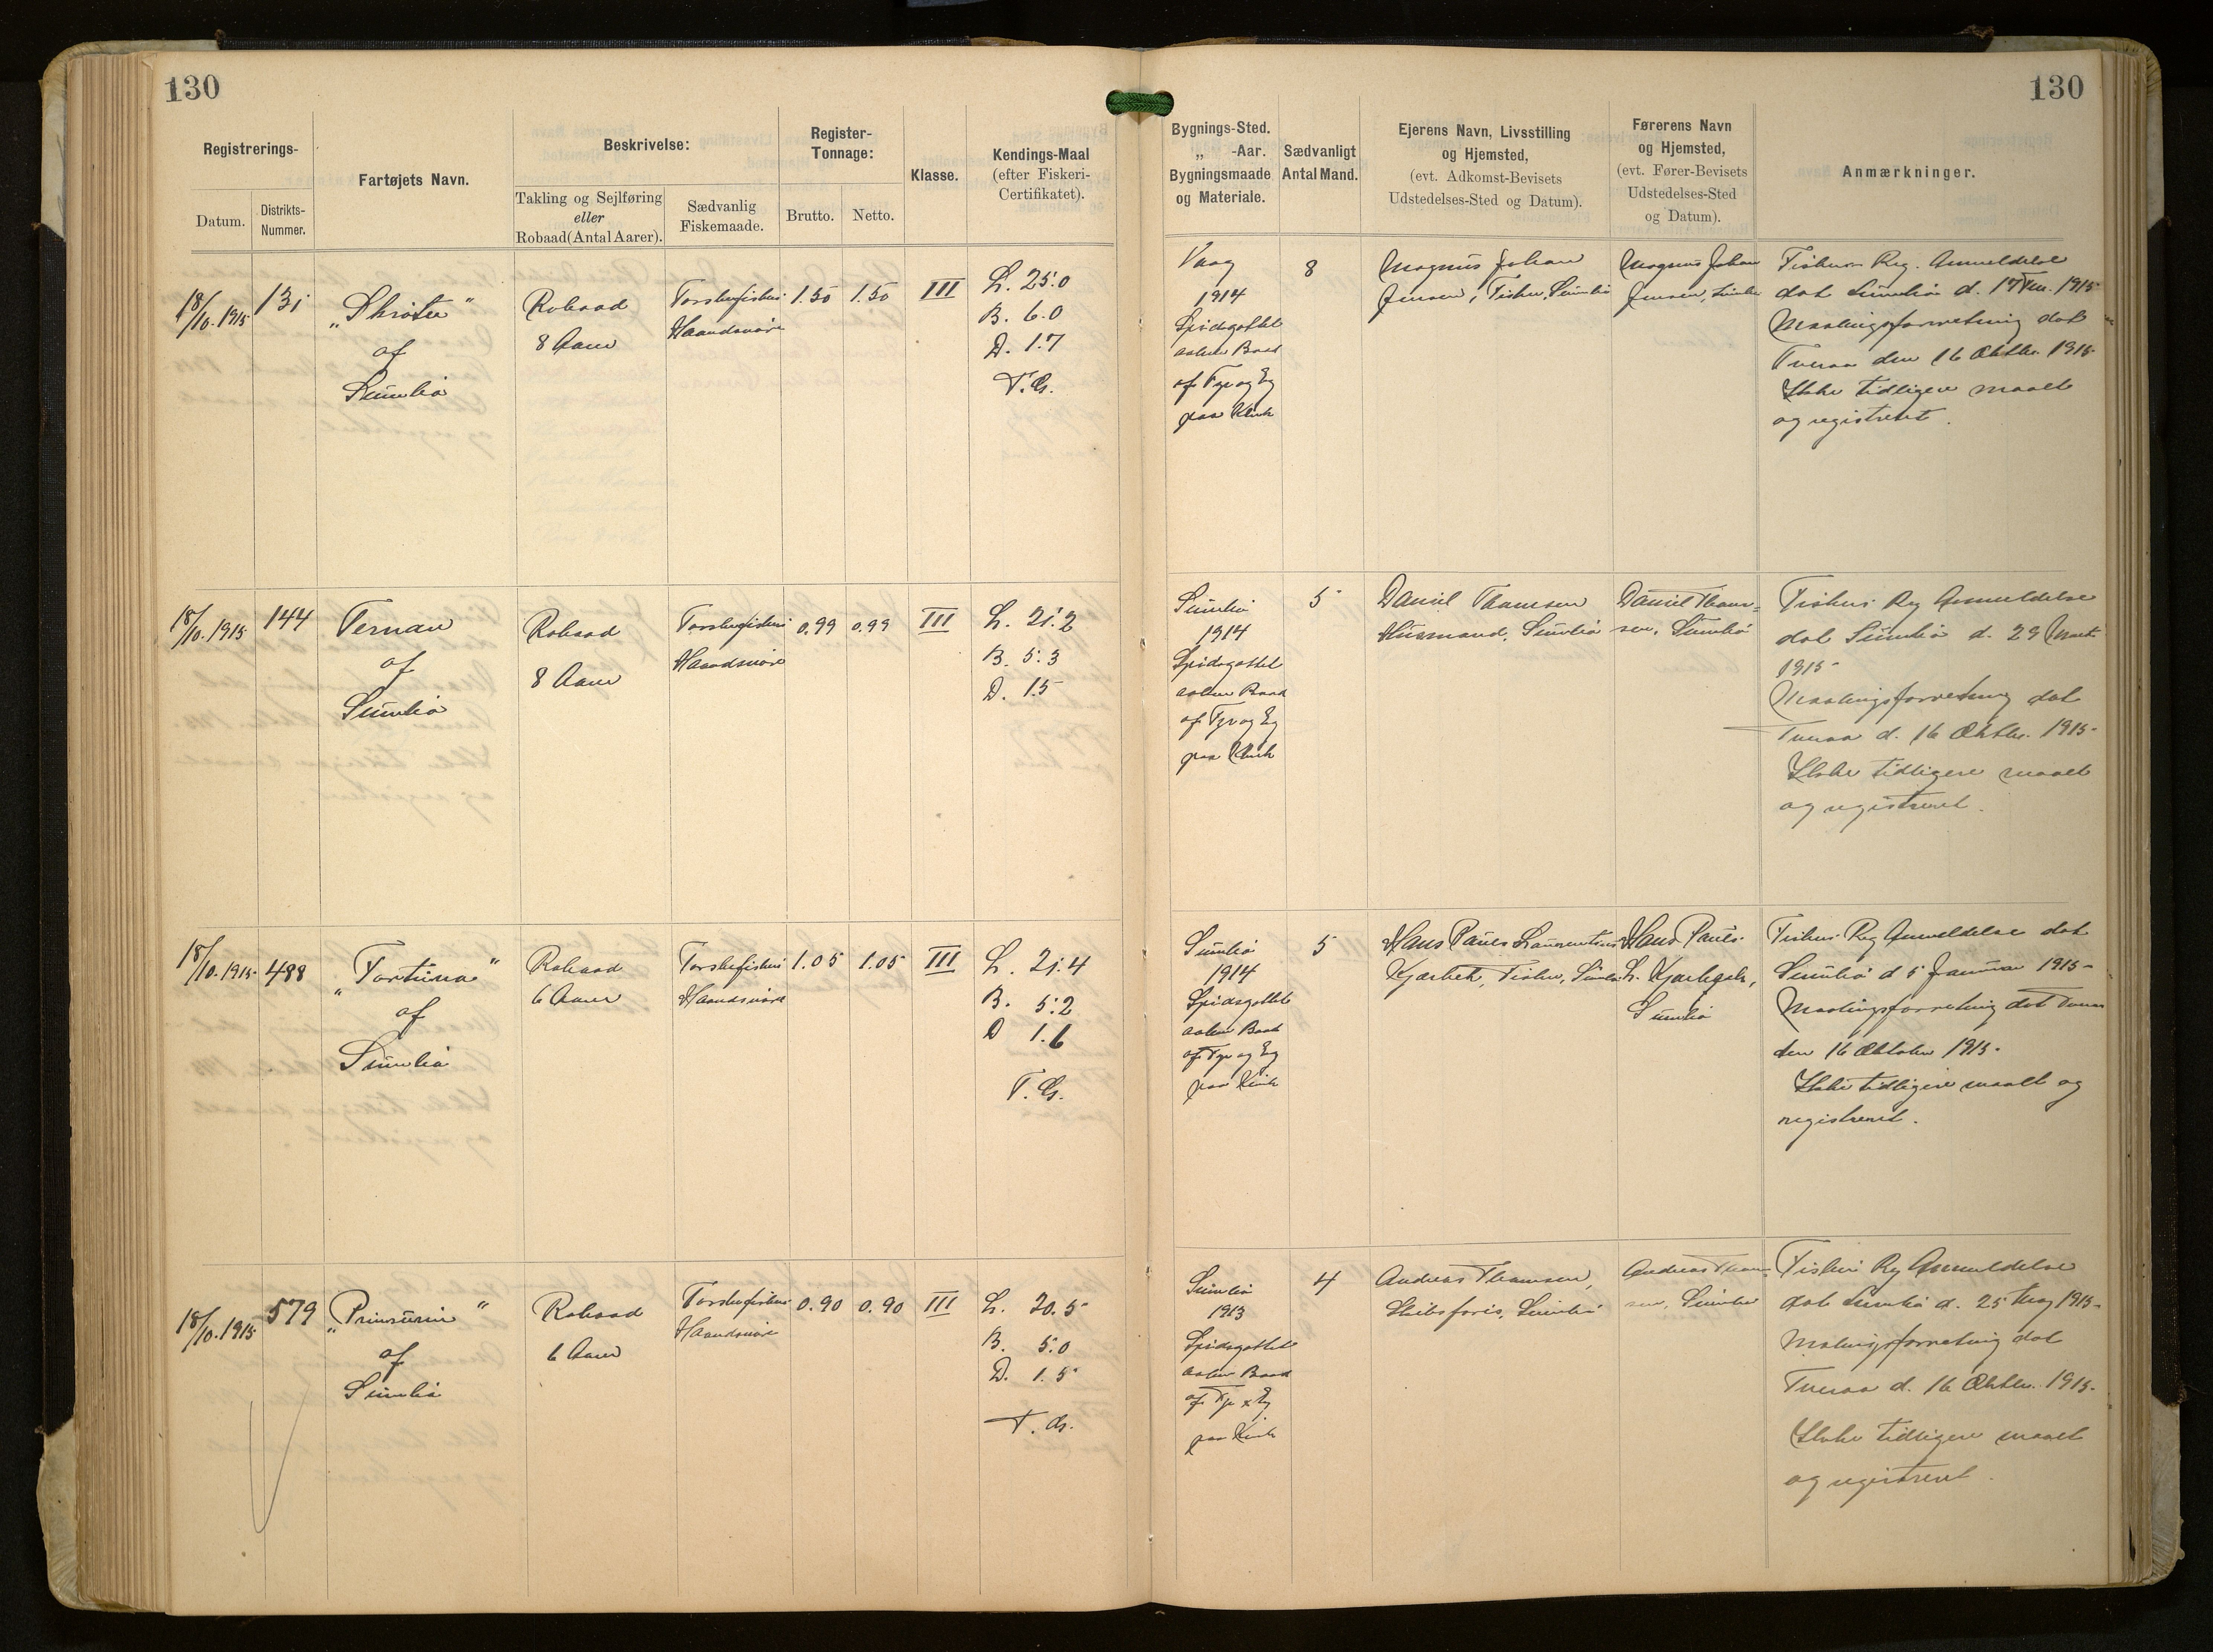 130
130
Registrerings-
Datum.
Distrikts-
Nummer.
Fartøjets Navn.
Beskrivelse:
Takling og Sejlføring
eller
Robaad (Antal Aarer).
Sædvanlig
Fiskemaade.
Register-
Tonnage:
Brutto.
Netto.
Klasse.
Kendings-Maal
(efter Fiskeri-
Certifikatet).
Bygnings-Sted.
„ -Aar.
Bygningsmaade
og Materiale.
Sædvanligt
Antal Mand.
Ejerens Navn, Livsstilling
og Hjemsted,
(evt. Adkomst-Bevisets
Udstedelses-Sted og Datum).
Førerens Navn
og Hjemsted,
(evt. Fører-Bevisets
Udstedelses-Sted
og Datum).
Anmærkninger.
18/10. 1915
131
af
Sumbø
Robaad
8 Aarer
Torskefiskeri
Haandsnøre
1.50
1.50
III
L. 25.0
B. 6.0
D. 1.7
T. G.
Vaag
1914
Spidsgattet
aaben Baad
af Fyr og Eg
paa Klink
8
Magnus Johan
Jensen, Fisker, Sumbø
Magnus Johan
Jensen, Sumbø
Fiskeri Reg. Anmeldelse
dat Sumbø d. 1915
Maalingsforretning dat
Tveraa den 16 Oktbr. 1915
Ikke tidligere maalt
og registreret.
18/10. 1915
144
Ternan
af
Sumbø
Robaad
8 Aarer
Torskefiskeri
Haandsnøre
0.99
0.99
III
L. 21.2
B. 5.3
D. 1.5
Sumbø
1914
Spidsgattet
aaben Baad
af Fyr og Eg
paa Klink
5
Daniel Thomsen
Husmand, Sumbø
Daniel Thom=
sen, Sumbø
Fiskeri Reg Anmeldelse
dat Sumbø d. 29 Marts
1915
Maalingsforretning dat
Tveraa d. 16 Oktbr. 1915
Ikke tidligere maalt
og registreret.
18/10. 1915
488
„Fortuna“
af
Sumbø
Robaad
6 Aarer
Torskefiskeri
Haandsnøre
1.05
1.05
III
L. 21.4
B. 5.2
D 1.6
T. G.
Sumbø
1914
Spidsgattet
aaben Baad
af Fyr og Eg
paa Klink
5
Hans Paules Laurentius
Kjærbek, Fisker, Sumbø
Hans Paules
L. Sumbø
Fiskeri Reg Anmeldelse dat
Sumbø d 5 Januar 1915
Maalingsforretning dat Tveraa
den 16 Oktober 1915.
Ikke tidligere maalt og
registreret.
18/10. 1915
579
af
Sumbø
Robaad
6 Aarer
Torskefiskeri
Haandsnøre
0.90
0.90
III
L. 20.5
B. 5.0
D. 1.5
T. G.
Sumbø
1913
Spidsgattet
aaben Baad
af Fyr & Eg
paa Klink
4
Andreas Thomsen,
Sumbø
Andreas Thom-
sen, Sumbø
Fiskeri Reg Anmeldelse
dat Sumbø d. 25 Maj 1915
Maalingsforretning dat
Tveraa d. 16 Oktbr. 1915.
Ikke tidligere maalt
og registreret.